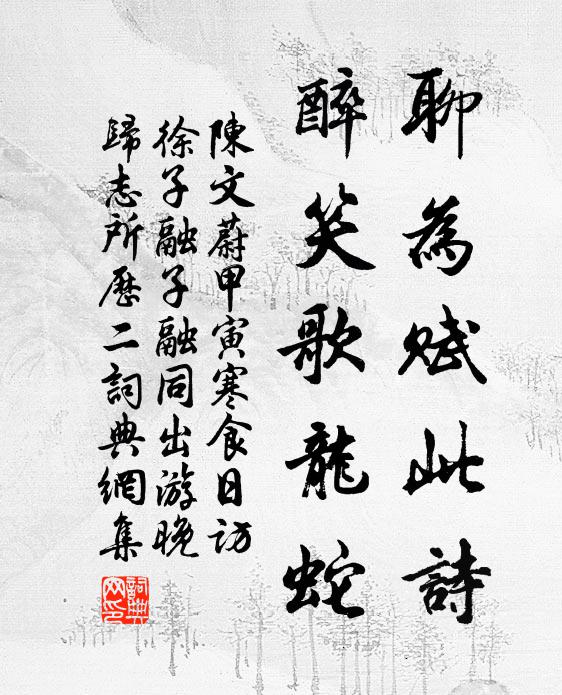 聊為賦此詩
醉笑歌龍蛇
陳文蔚甲寅寒食日訪
徐子融子融同出游晚
歸志所歷二詞典網集